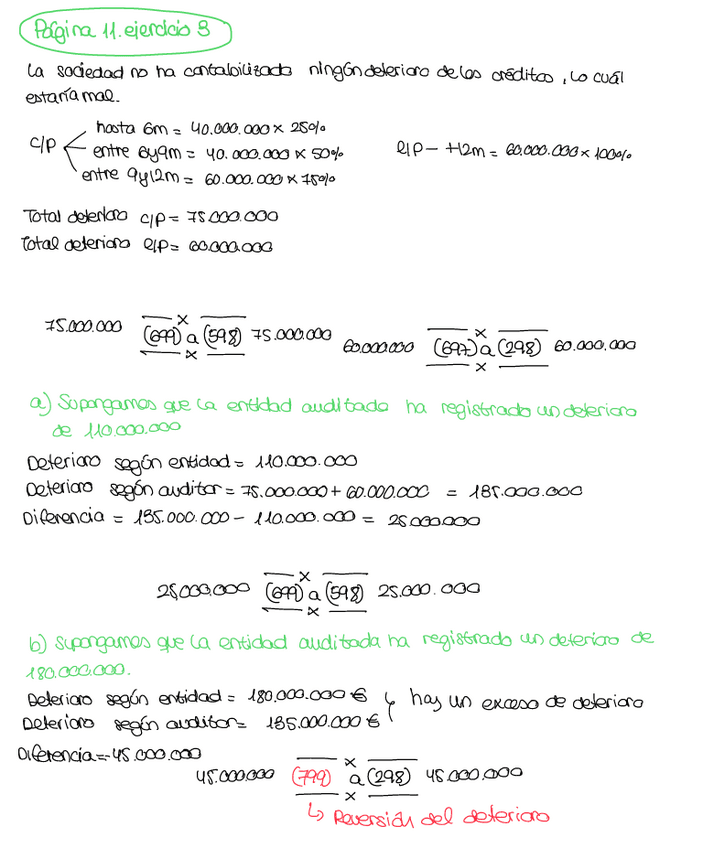 Página 11. ejercicio 3
La sociedad no ha contabilizado ningún deterioro de los créditos, lo cuál
estaría mal.
c/p
hasta 6m = 40.000.000 x 25%
entre 6y9m = 40.000.000 x 50%
entre 9y12m = 60.000.000 x 75%
l/p - +12m = 60.000.000 x 100%
Total deterioro c/p = 75.000.000
Total deterioro l/p = 60.000.000
75.000.000 (699) a (598) 75.000.000
60.000.000 (697) a (298) 60.000.000
a) Supongamos que la entidad auditada ha registrado un deterioro
de 110.000.000
Deterioro según entidad = 110.000.000
Deterioro según auditor = 75.000.000 + 60.000.000 = 135.000.000
Diferencia = 135.000.000 - 110.000.000 = 25.000.000
25.000.000 (699) a (598) 25.000.000
b) Supongamos que la entidad auditada ha registrado un deterioro de
180.000.000.
Deterioro según entidad = 180.000.000 €
Deterioro según auditor = 135.000.000 €
hay un exceso de deterioro
Diferencia = -45.000.000
45.000.000 (799) a (298) 45.000.000
↳ Reversión del deterioro